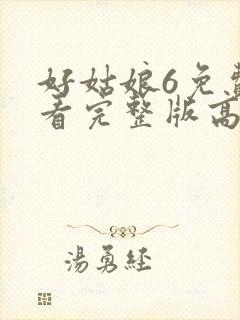 好姑娘6免费
看完整版高
湯勇經